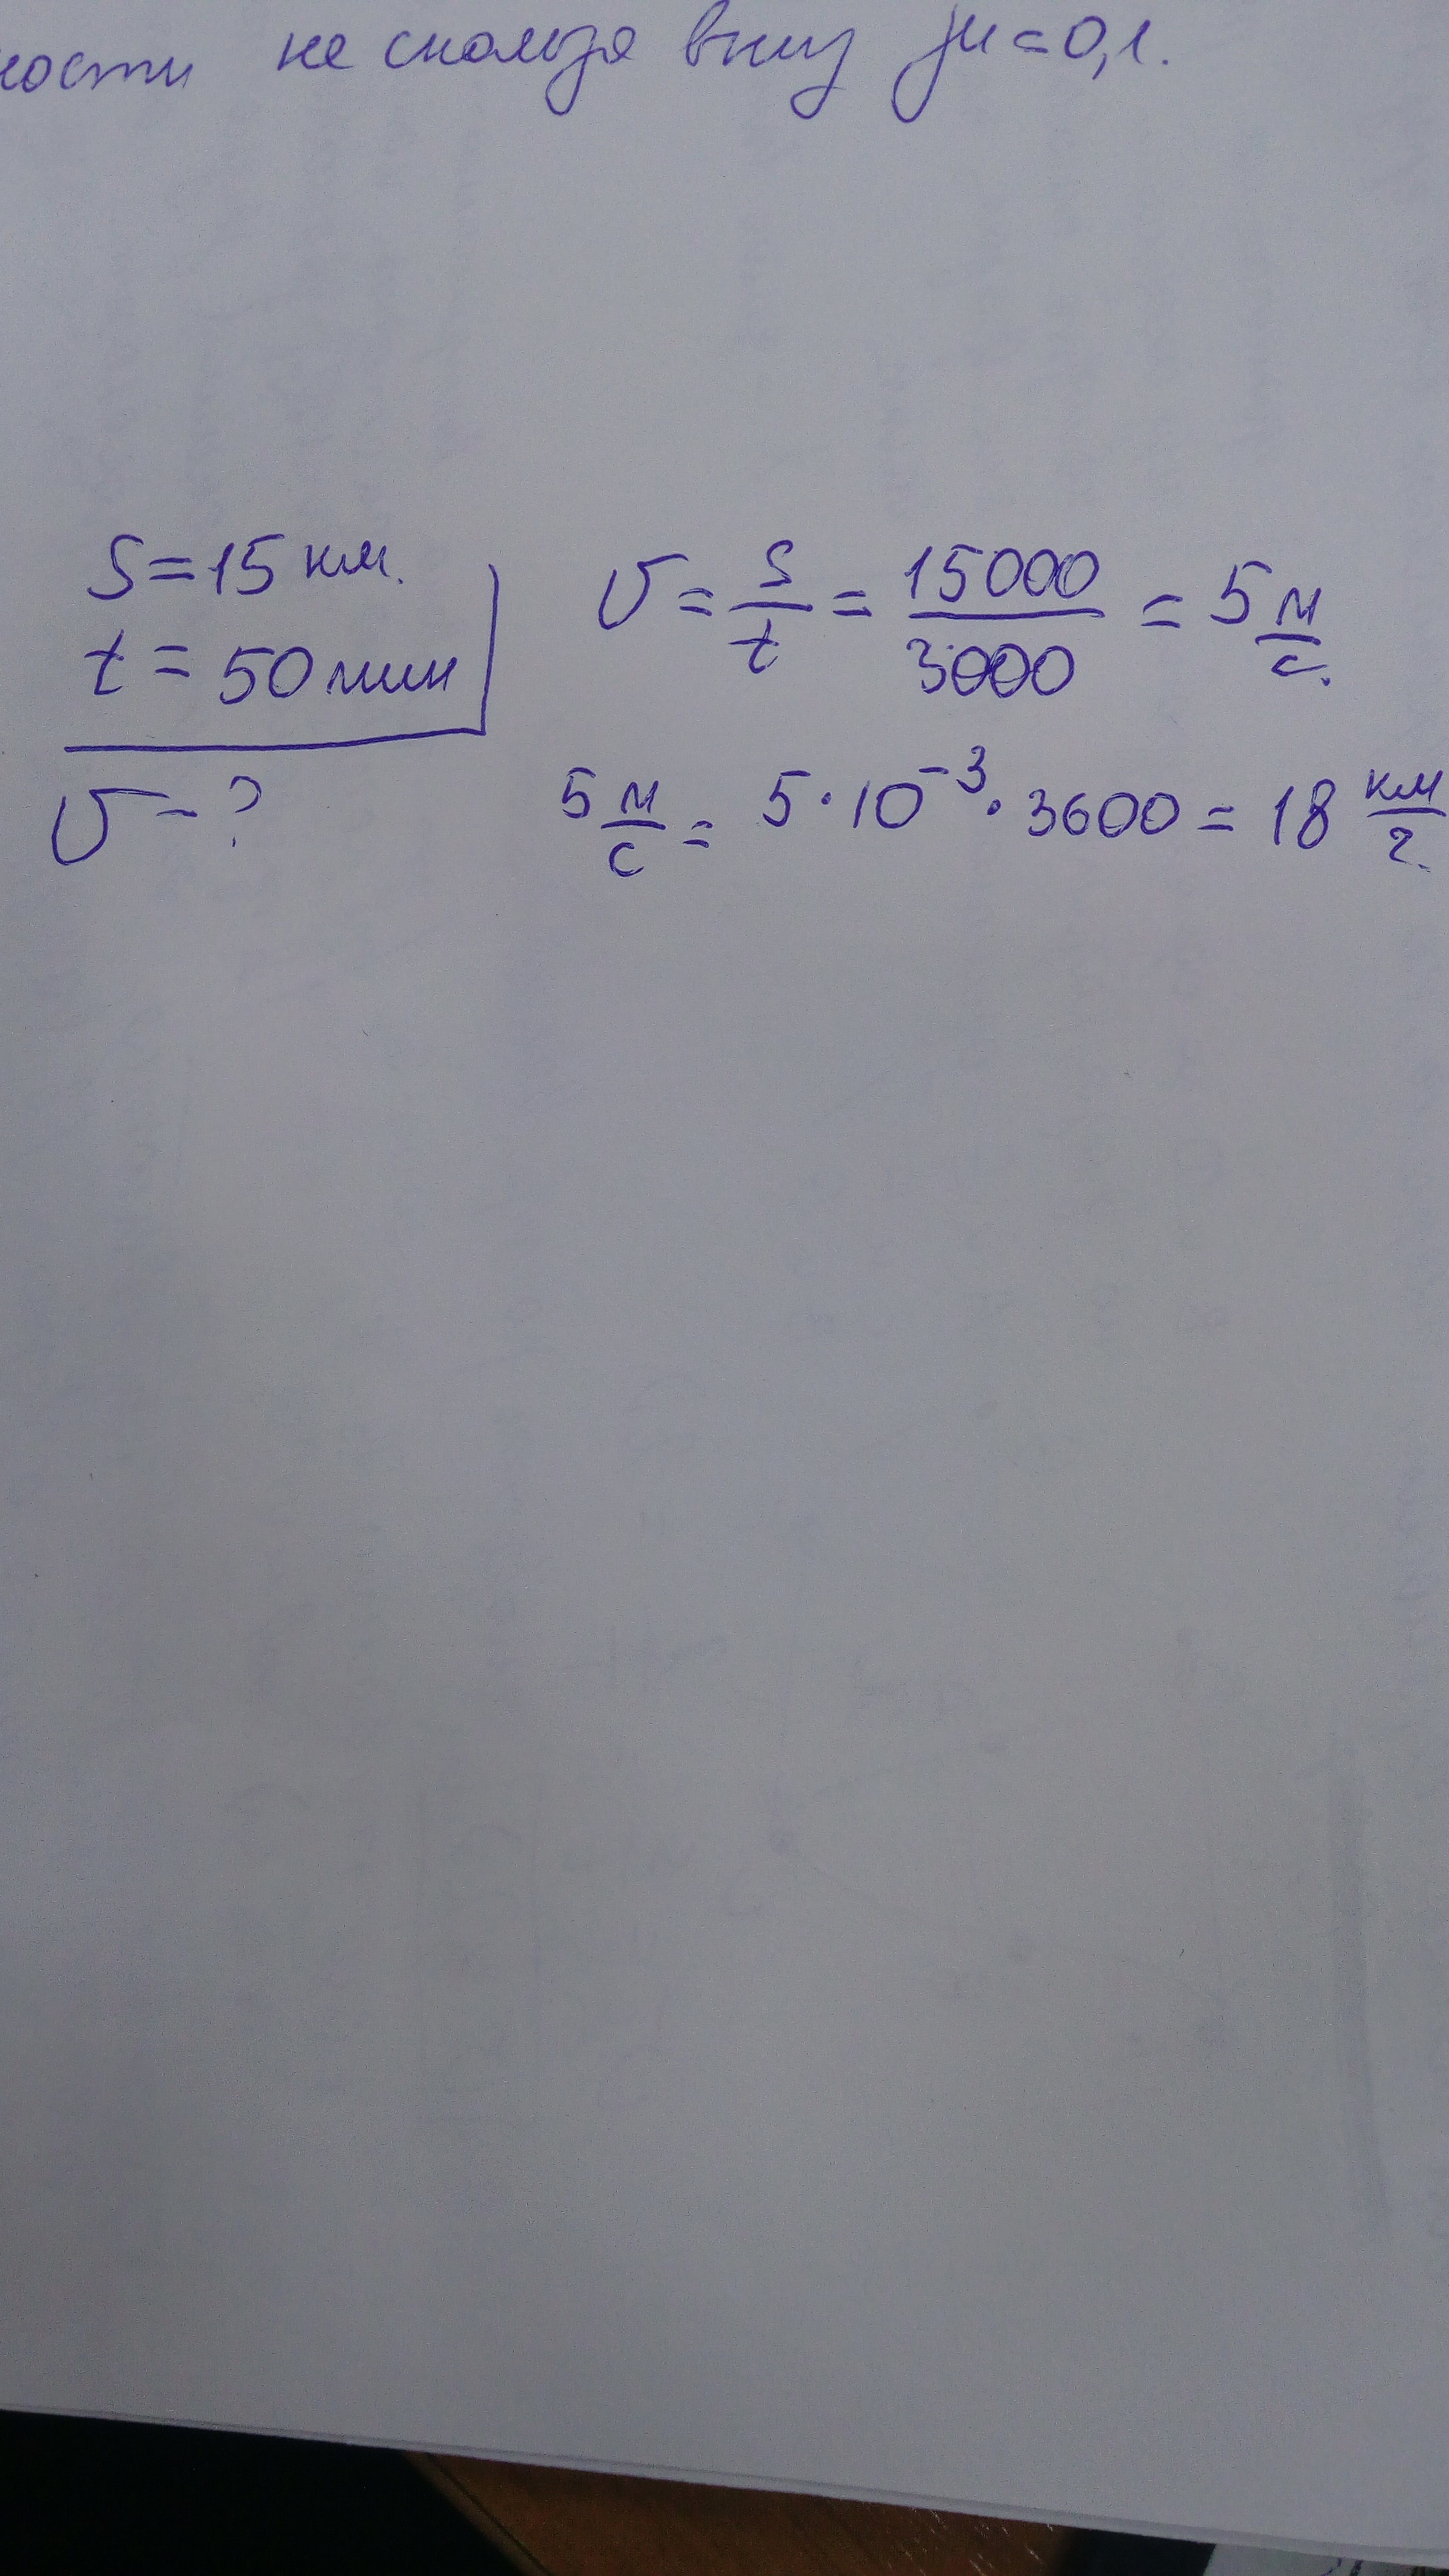 ности не скользя вниз μ=0,1.
S=15 км.
t=50 мин
υ-?
υ=S/t=15000/3000=5 м/с.
5 м/с=5·10⁻³·3600=18 км/г.